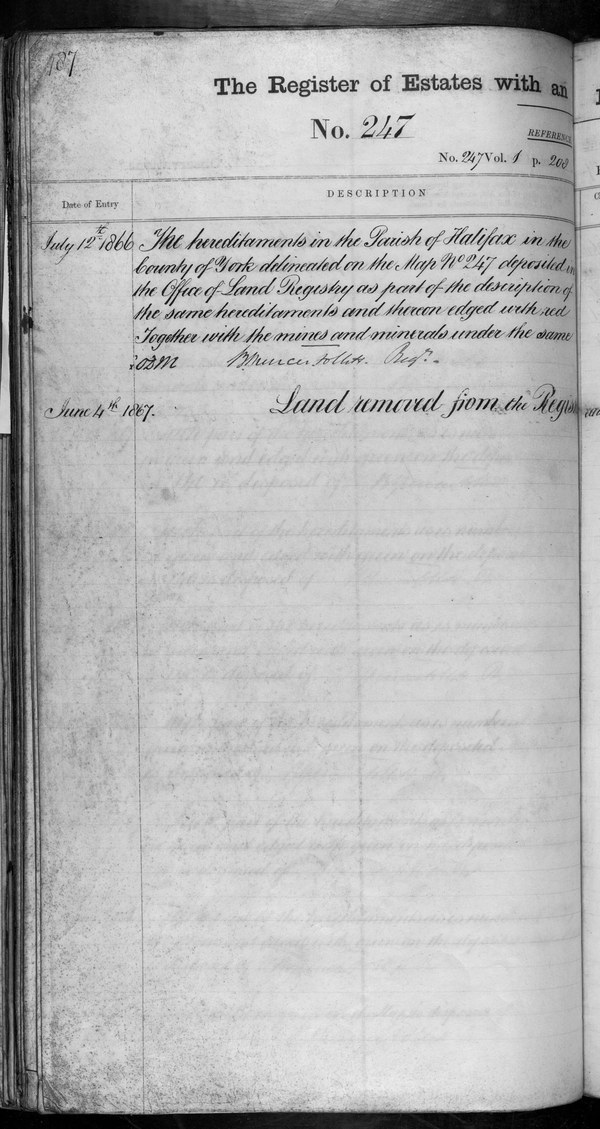 187
The Register of Estates with an
No. 247
REFERENCE
No. 247 Vol. 1 p. 208
Date of Entry
DESCRIPTION
July 12th 1866 The hereditaments in the Parish of Halifax in the
County of York delineated on the Map No 247 deposited in
the Office of Land Registry as part of the description of
the same hereditaments and thereon edged with red
Together with the mines and minerals under the same
Regr.
June 4th 1867. Land removed from the Regis